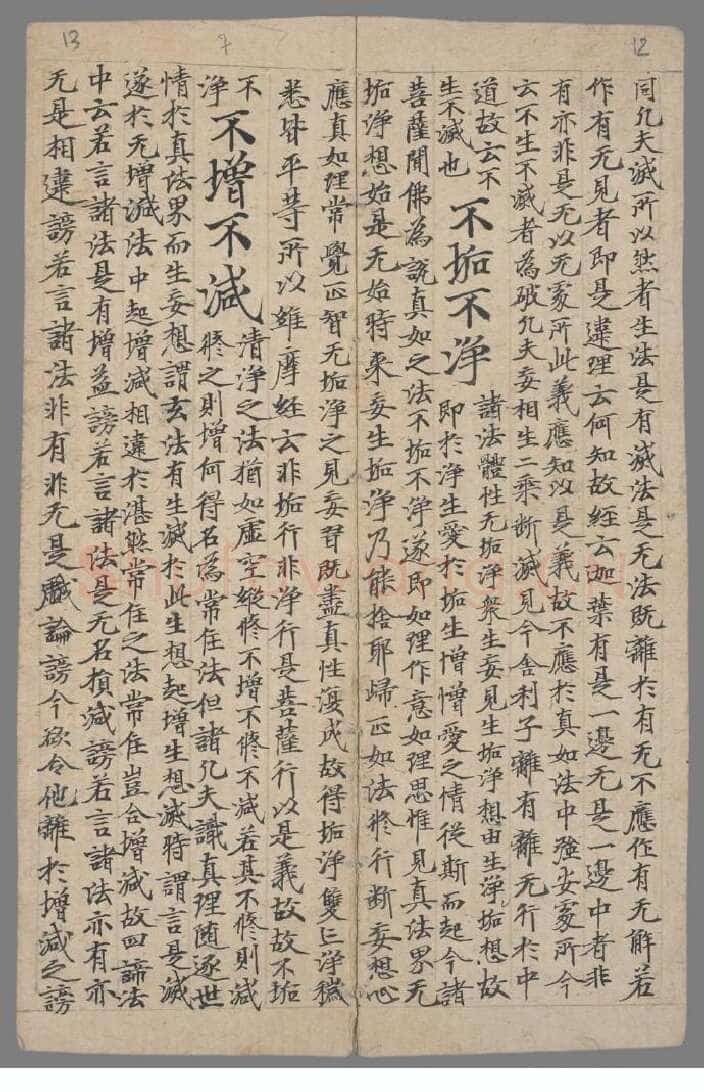 12
同凡夫滅所以然者生法是有滅法是无法既離於有无不應作有无解若
作有无見者即是違理云何知故經云迦葉有是一邊无是一邊中者非
有亦非是无以无家所此義應知以是義故不應於真如法中強安家所今
云不生不滅者為破凡夫妄相生二乘斷滅見今舍利子離有離无行於中
道故云不
生不滅也
不垢不淨
諸法體性无垢淨衆生妄見生垢淨想由生淨垢想故
即於淨生愛於垢生憎憎愛之情從斯而起今諸
菩薩聞佛為說真如之法不垢不淨遂即如理作意如理思惟見真法界无
垢淨想始是无始時來妄生垢淨乃能捨耶歸正如法修行斷妄想心
應真如理常覺正智无垢淨之見妄習既盡真性復成故得垢淨雙亡淨穢
悉皆平等所以維摩經云非垢行非淨行是菩薩行以是義故故不垢
不
淨
不增不減
清淨之法猶如虛空縱修不增不修不減若其不修則減
修之則增何得名為常住法但諸凡夫識真理随逐世
情於真法界而生妄想謂玄法有生滅於此生想起增生想滅時謂言是滅
遂於无增減法中起增減相違於湛然常住之法常住豈合增減故四諦法
中云若言諸法是有增益謗若言諸法是无名損減謗若言諸法亦有亦
无是相違謗若言諸法非有非无是戲論謗今欲令他離於增減之謗
7
13